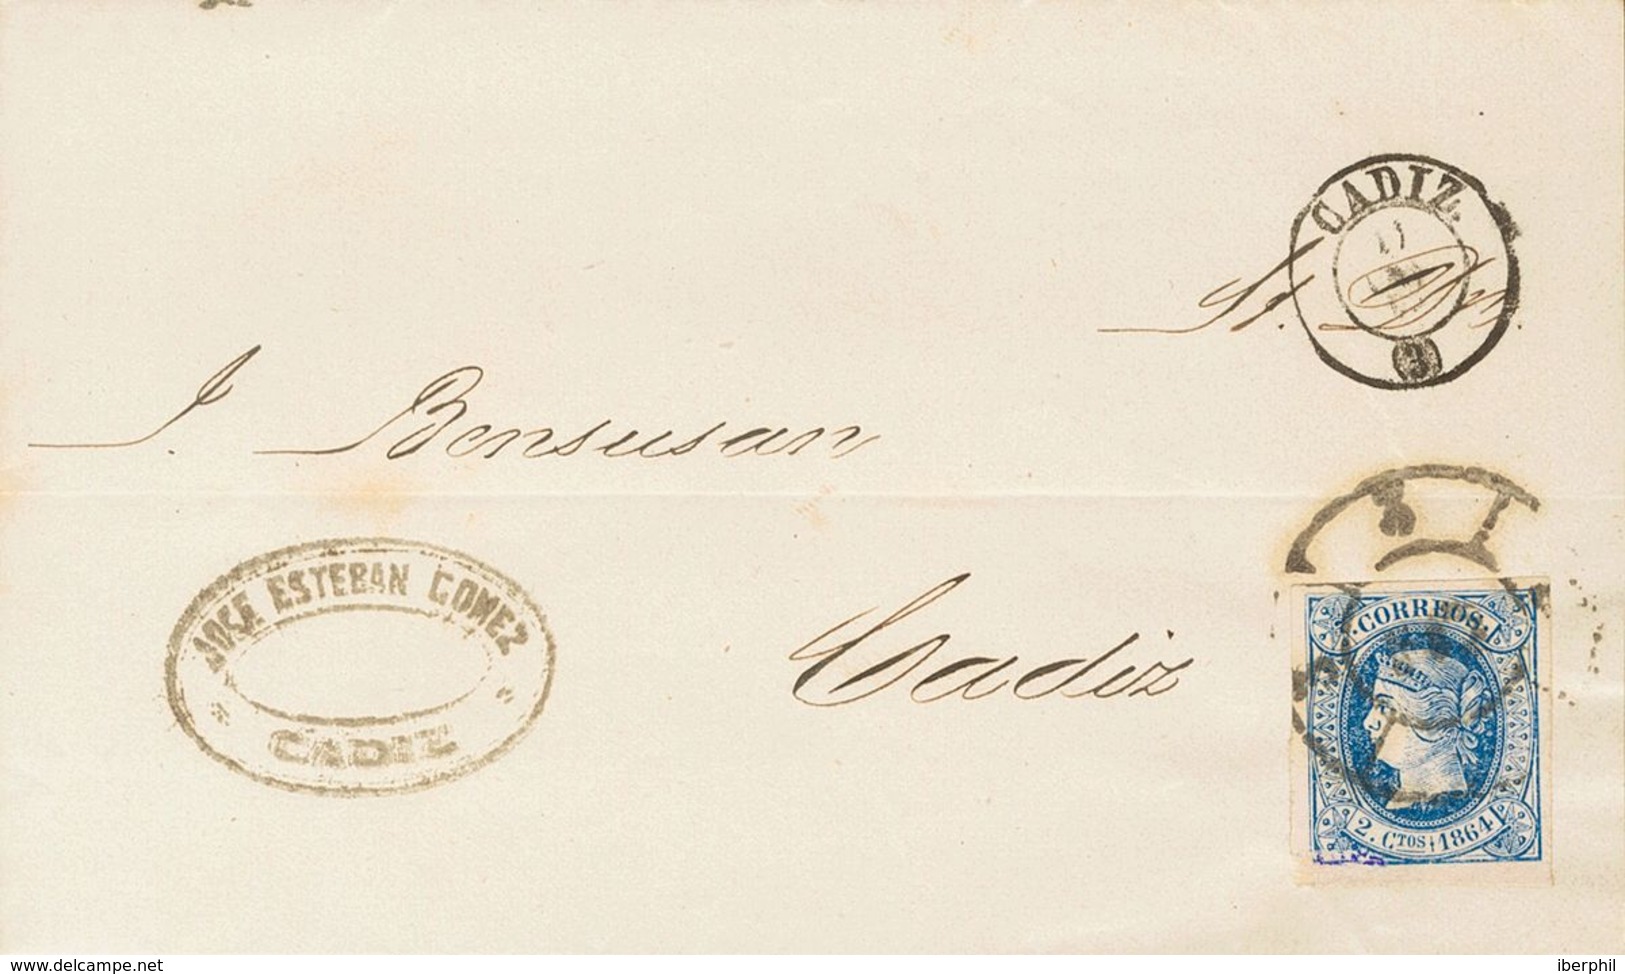 CADIZ.
11
St.
J. Bensusan
JOSE ESTEBAN GOMEZ
CADIZ
Cadiz
CORREOS.
2. CTOS 1864
www.delcampe.net
iberphil